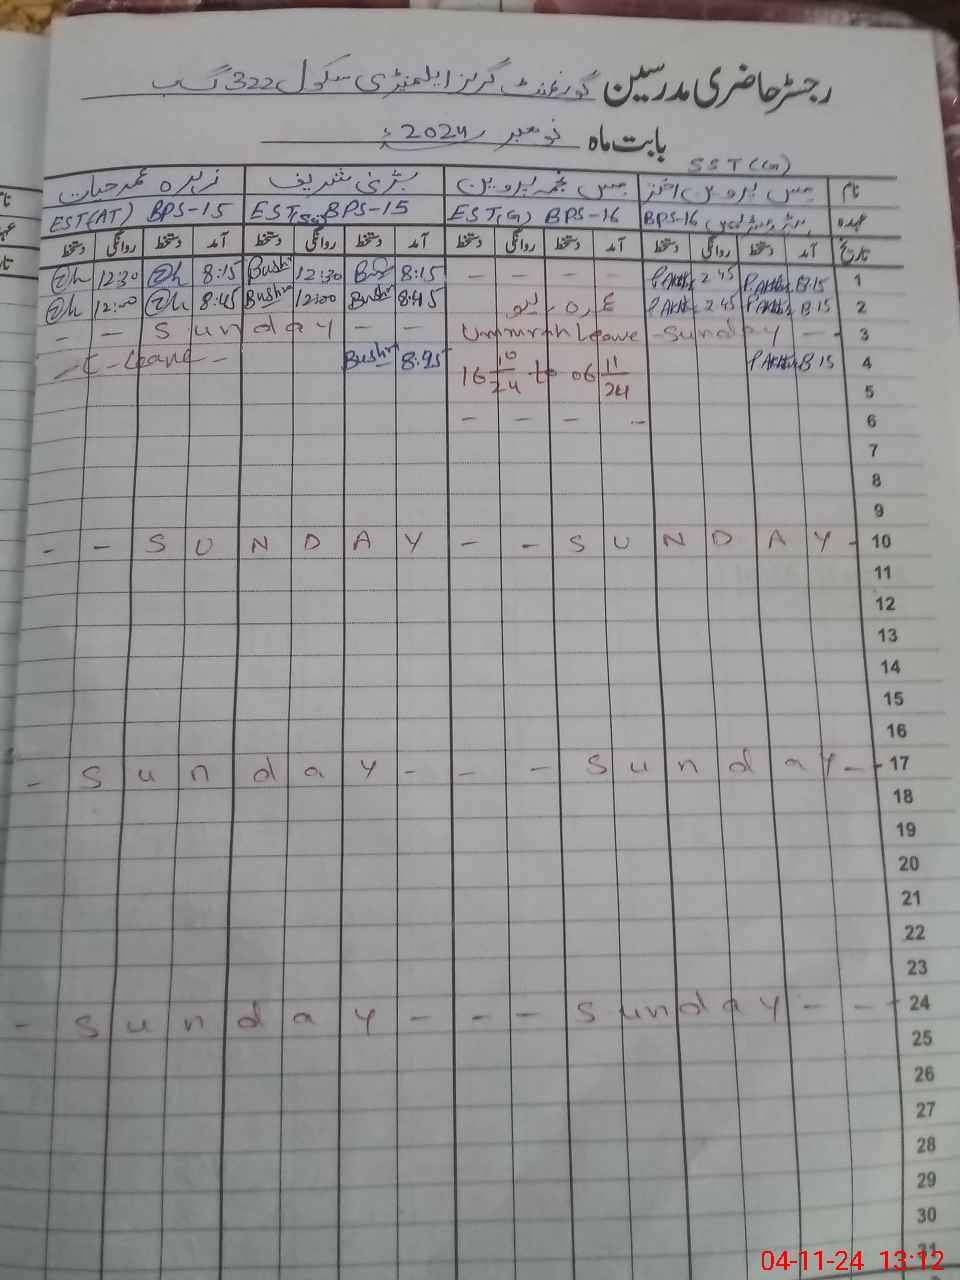 رجسٹر حاضری مدرسین گورنمنٹ گرلز ایلیمنٹری سکول 322 گ ب
بابت ماہ نومبر 2024ء
SST(G)
نام مس پروین اختر مس نجمہ پروین بشریٰ شریف زہرہ عمر حیات
عہدہ BPS-16 EST(G) BPS-16 EST BPS-15 EST(AT) BPS-15
تاریخ آمد دستخط روانگی دستخط آمد دستخط روانگی دستخط آمد دستخط روانگی دستخط آمد دستخط روانگی دستخط
1 8:15 P.Akhtar 2 45 P.Akhtar - - - - 8:15 Bush 12:30 Bushr 8:15 12:30
2 8:15 P.Akhtar 2 45 P.Akhtar 8:45 Bushr 12:00 Bushra 8:45 12:00
3 - - Sunday - - Ummrah Leave - Sunday - -
4 - C-Leave - Bushr 8:25 16 10/24 to 06 11/24 P.Akhtar 8 15
5
6 - - - -
7
8
9
10 - - SUNDAY - - SUNDAY -
11
12
13
14
15
16
17 - Sunday - - - Sunday - -
18
19
20
21
22
23
24 - Sunday - - - Sunday - -
25
26
27
28
29
30
31
04-11-24 13:12